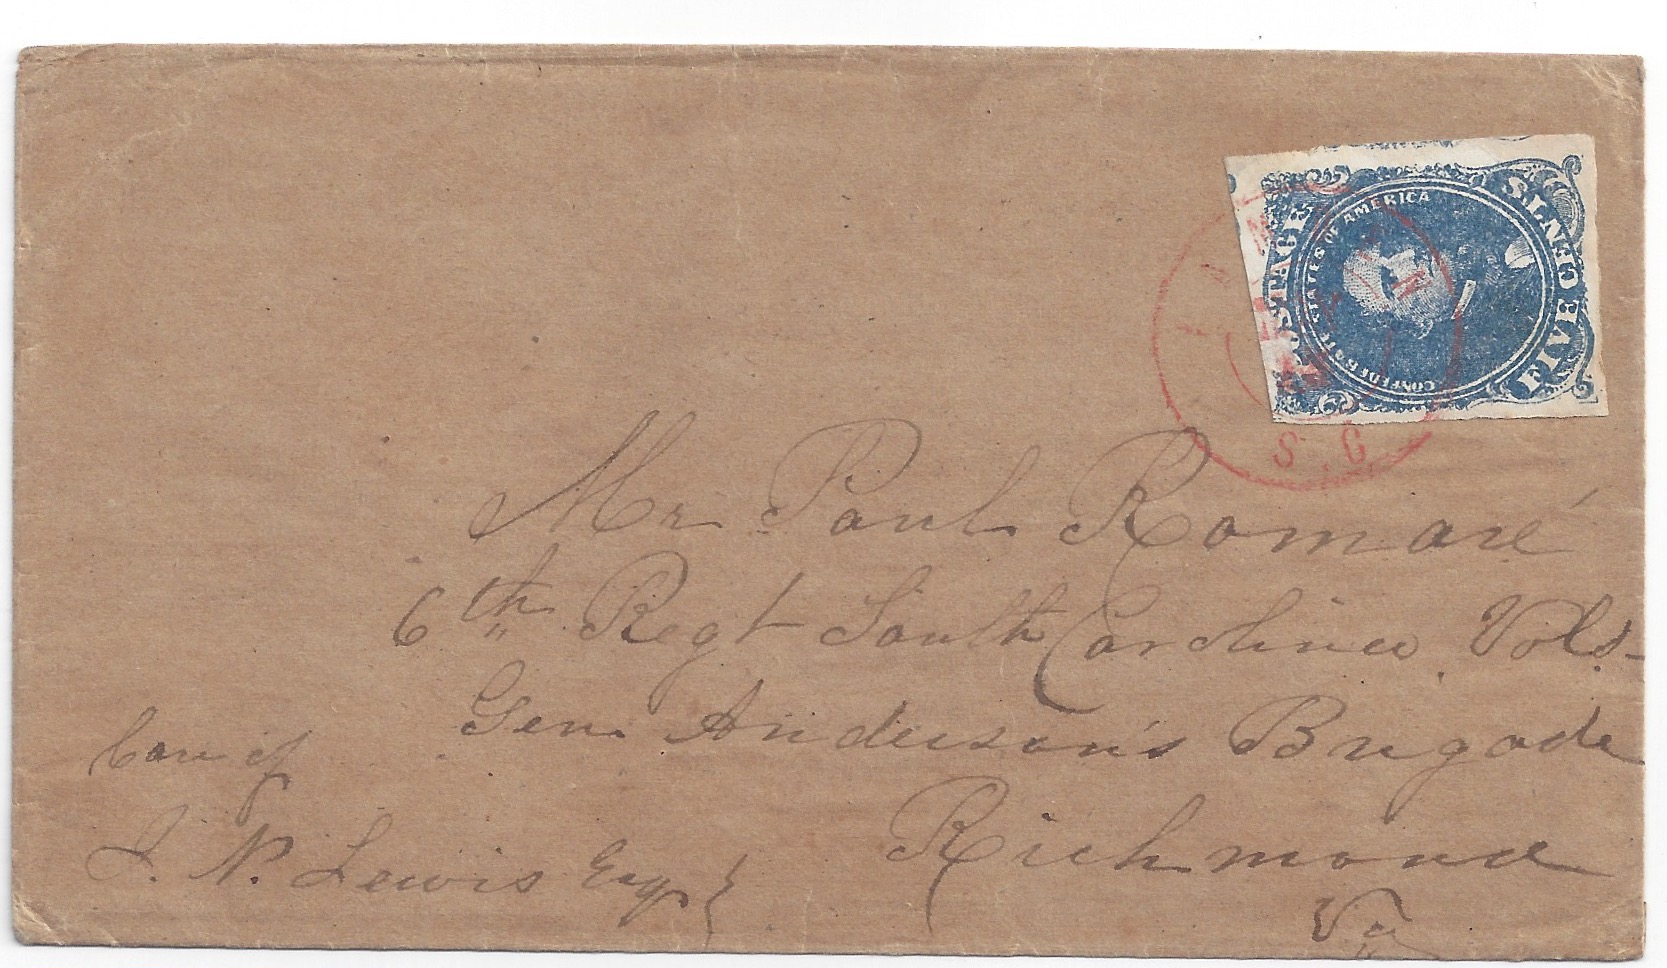 POSTAGE
CONFEDERATE STATES OF AMERICA
FIVE CENTS
S.C
Mr Paul Romaré
6th Regt South Carolina Vols.
Gen. Anderson's Brigade
Richmond
Va
Care of
J. N. Lewis Esqr